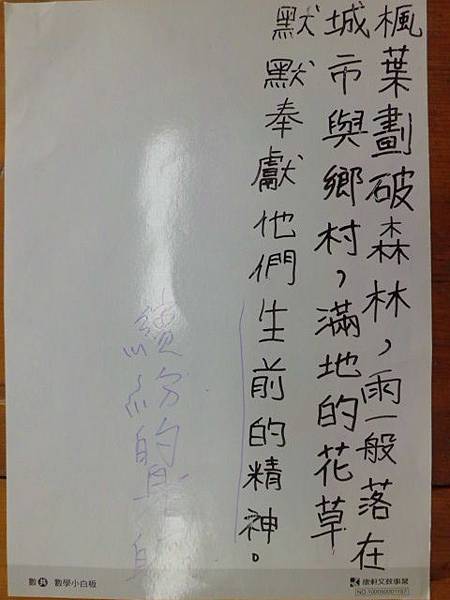 楓葉劃破森林，雨一般落在
城市與鄉村，滿地的花草
默默奉獻他們生前的精神。
繽紛的
數 共 數學小白板
康軒文教事業
NO.1000900001197